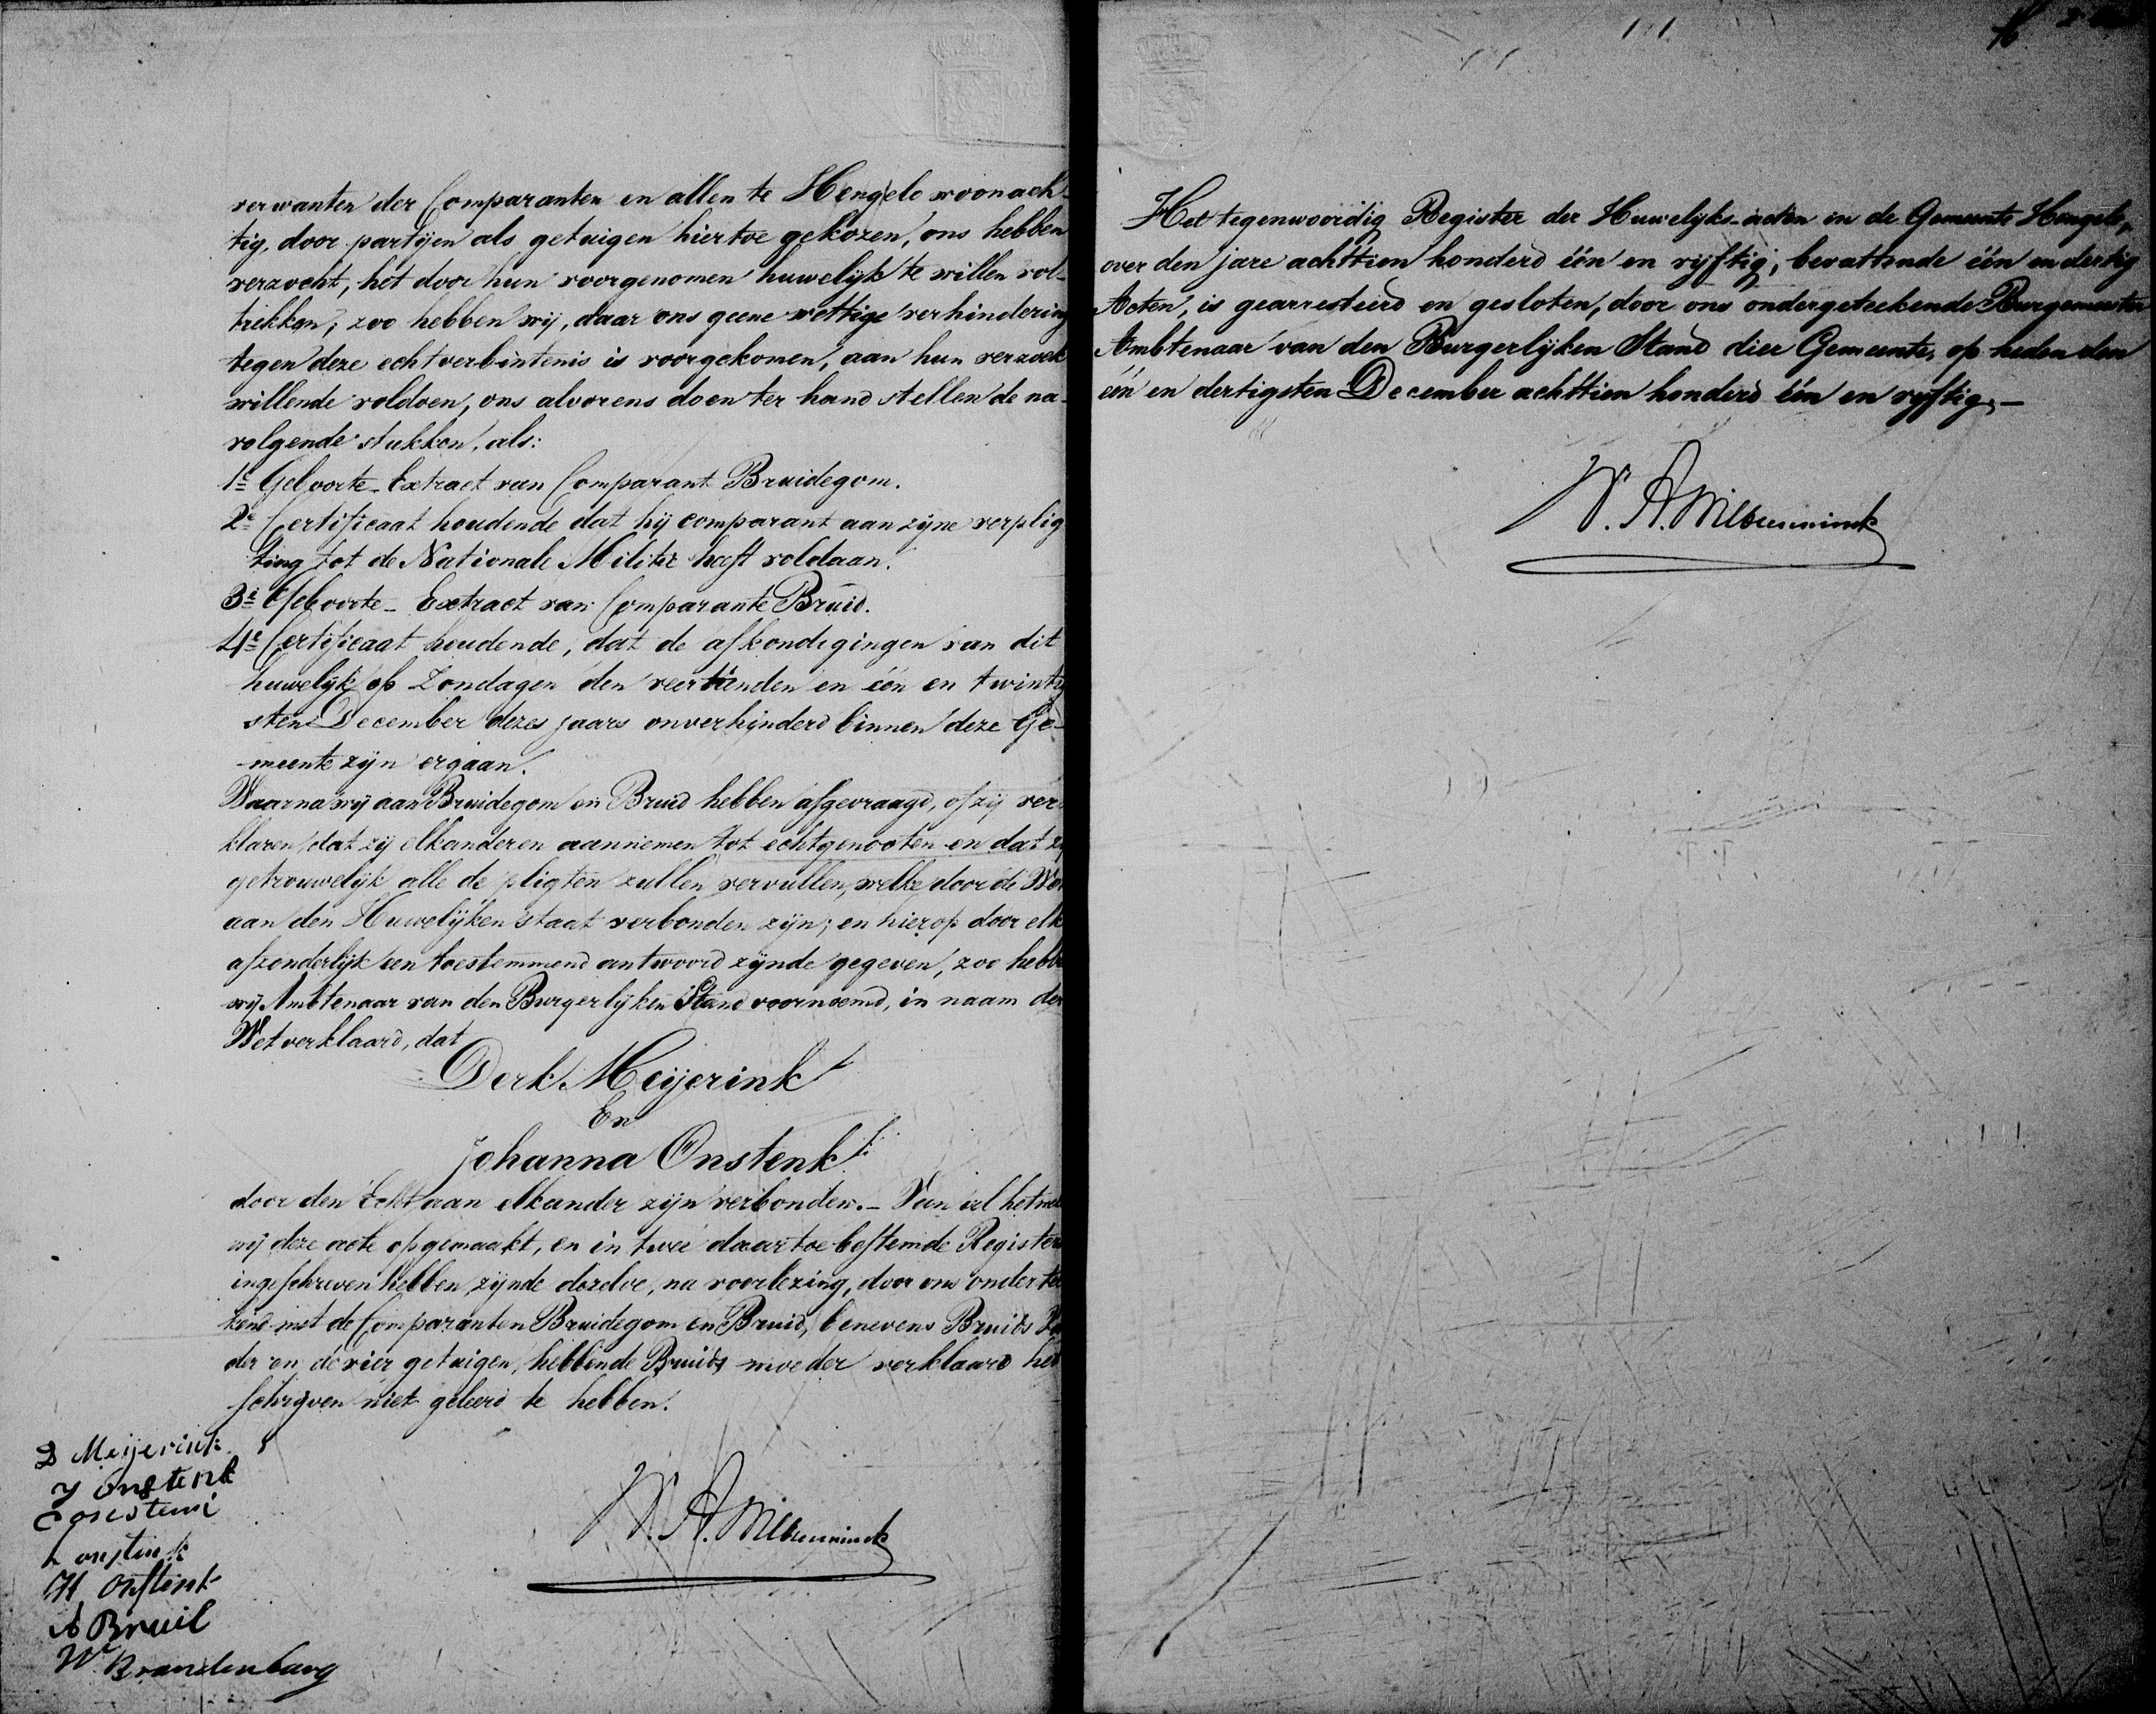 verwanten der Comparanten en allen te Hengelo woonach-
tig, door partijen als getuigen hiertoe gekozen, ons hebben
verzocht, het door hun voorgenomen huwelijk te willen vol-
trekken; zoo hebben wij, daar ons geene wettige verhindering
tegen deze echtverbintenis is voorgekomen, aan hun verzoek
willende voldoen, ons alvorens doen ter hand stellen de na-
volgende stukken, als:
1e Geboorte-Extract van Comparant Bruidegom.
2e Certificaat houdende dat hij comparant aan zijne verplig
ting tot de Nationale Militie heeft voldaan.
3e Geboorte-Extract van Comparante Bruid.
4e Certificaat houdende, dat de afkondigingen van dit
huwelijk op Zondagen den veertienden en één en twintig
sten December dezes jaars onverhinderd binnen deze Ge-
-meente zijn ergaan.
Waarna wij aan Bruidegom en Bruid hebben afgevraagd, of zij ver
klaren dat zij elkanderen aannemen tot echtgenooten en dat zij
getrouwelijk alle de pligten zullen vervullen, welke door de Wet
aan den Huwelijken staat verbonden zijn; en hierop door elk
afzonderlijk een toestemmend antwoord zijnde gegeven, zoo hebben
wij Ambtenaar van den Burgerlijken Stand voornoemd, in naam der
Wet verklaard, dat
Derk Meijerink
En
Johanna Onstenk
door den Echt aan elkander zijn verbonden.- Van al het
wij deze acte opgemaakt, en in twee daartoe bestemde Registers
ingeschreven hebben, zijnde dezelve, na voorlezing, door ons onder
kend met de Comparanten Bruidegom en Bruid, benevens Bruids Va
der en de vier getuigen, hebbende Bruids moeder verklaard het
schrijven niet geleerd te hebben.
D Meijerink
J Onstenk
H Onstenk
A Bruil
W Brandenburg
W. A.
Het tegenwoordig Register der Huwelijks-acten in de Gemeente Hengelo,
over den jare achttien honderd één en vijftig, bevattende één en dertig
Acten, is gearresteerd en gesloten, door ons ondergeteekende Burgemeester
Ambtenaar van den Burgerlijken Stand dier Gemeente, op heden den
één en dertigsten December achttien honderd één en vijftig.-
W. A.